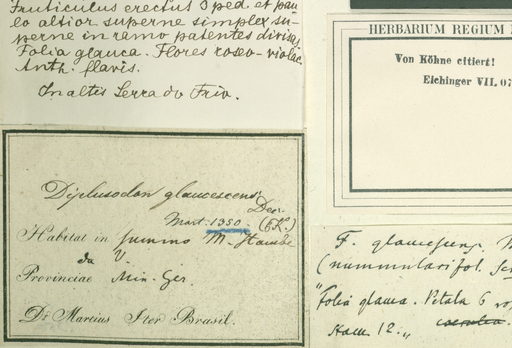 Fruticulus erectus 3 ped. et pau
lo altior superne simplex su-
perne in ramo patentes divisus
Folia glauca. Flores roseo-violac.
Anth. flavis.
In altis Serra do Frio.
HERBARIUM REGIUM
Von Köhne citiert!
Eichinger VII. 07
Diplusodon glaucescens
Dec.
Mart. 1350. (6K.)
Habitat in summo M. Itambe
da V.
Provinciae Min. Ger.
Dr Martius Iter Brasil.
F. glaucescens
(nummularifol.
"Folia glauca. Petala 6
Stam. 12."
coerulea.